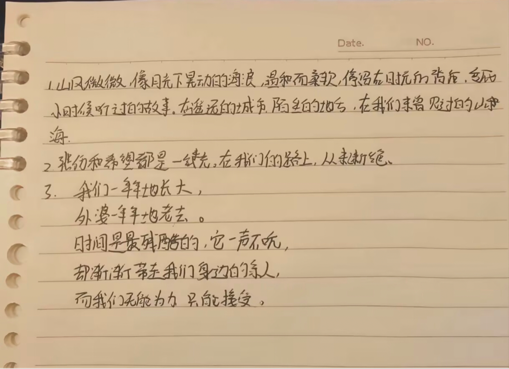 Date. NO.
1.山风微微,像月光下晃动的海浪,温和而柔软,停留在时光的背后,变成
小时候听过的故事。在遥远的城市,陌生的地方,在我们未曾见过的山和
海。
2.悲伤和希望都是一缕光,在我们的路上,从未断绝、
3. 我们一年年地长大,
外婆一年年地老去。
时间是最残酷的,它一声不吭,
却渐渐带走我们身边的亲人,
而我们无能为力 只能接受。